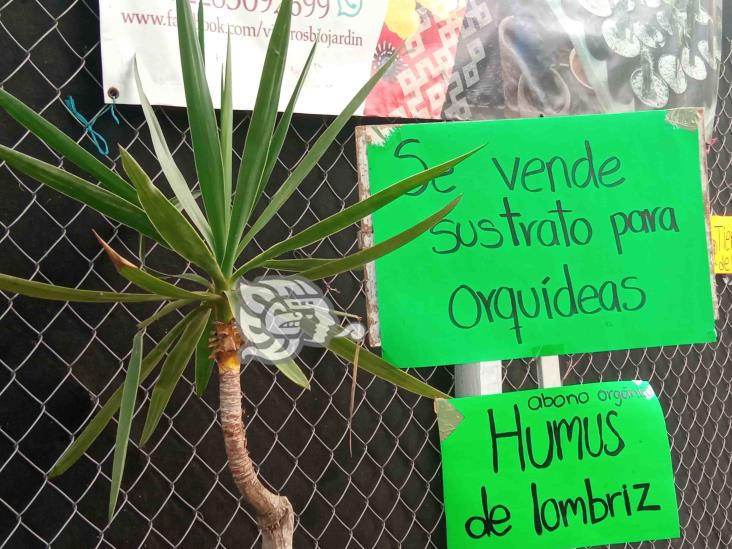 www.facebook.com/viverosbiojardin
Se vende
sustrato para
orquídeas
abono orgánico
Humus
de lombriz